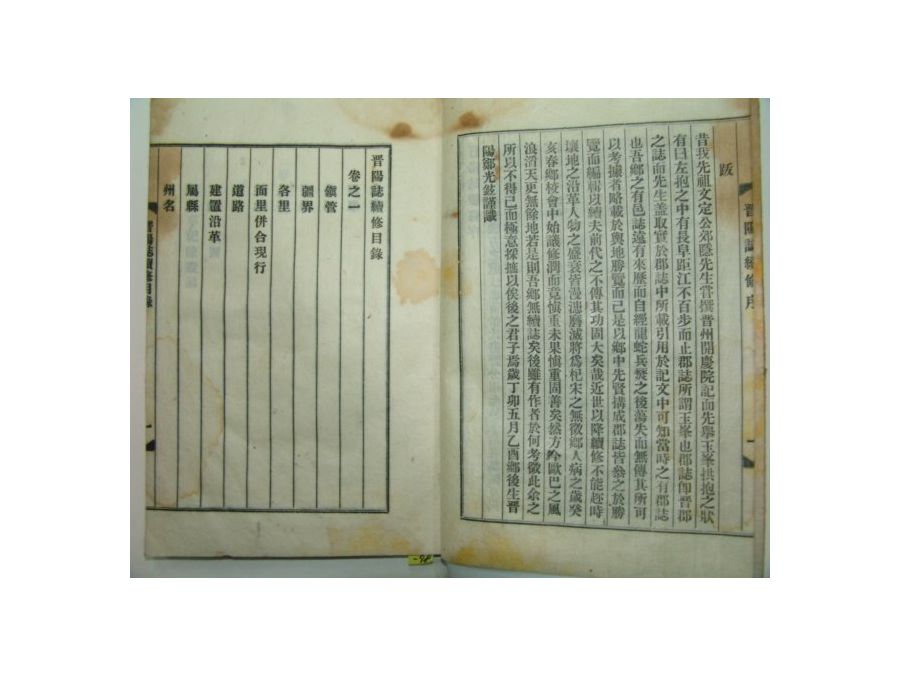 跋
昔我先祖文定公郊隱先生嘗撰晋州開慶院記而先擧玉峯拱抱之狀
有曰左抱之中有長阜距江不百步而止郡誌所謂玉峯也郡誌卽晋郡
之誌而先生盖取實於郡誌中所載引用於記文中可知當時之有郡誌
也吾鄕之有邑誌遠有來歷而自經龍蛇兵燹之後蕩失而無傳其所可
以考據者略載於輿地勝覽而已是以鄕中先賢搆成郡誌皆叅之於勝
覽而編輯以續夫前代之不傳其功固大矣哉近世以降續修不能趂時
壤地之沿革人物之盛衰皆漫漶磨滅將爲杞宋之無徵鄕人病之歲癸
亥春鄕稜會中始議修潤而竟愼重未果愼重固善矣然方今歐巴之風
浪滔天更無餘地若是則吾鄕無續誌矣後雖有作者於何考徵此余之
所以不得已而極意採摭以俟後之君子焉歲丁卯五月乙酉鄕後生晋
陽鄭光鉉謹識
晋陽誌續修序
晋陽誌續修目錄
卷之一
鎭管
疆界
各里
面里倂合現行
道路
建置沿革
屬縣
州名
晋陽誌續修目錄
一